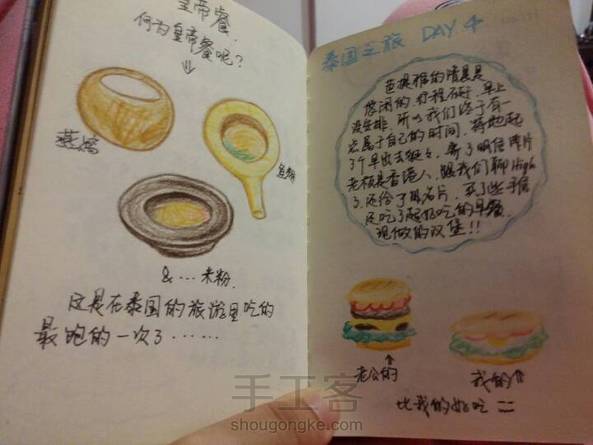 皇帝餐.
何为皇帝餐呢?
燕窝
鱼翅
&...米粉.
这是在泰国的旅游里吃的
最饱的一次了......
泰国之旅 DAY 4
芭提雅的清晨是
悠闲的.行程在
早上
没安排.所以我们终于有一
点属于自己的时间.特地起
了个早出去
寄了明信片
老板是香港人,跟我们聊High
了.还给了我名片.买了些手信
还吃了超好吃的早餐.
现做的汉堡!!
老公的
我的
比我的好吃 =
手工客
shougongke.com